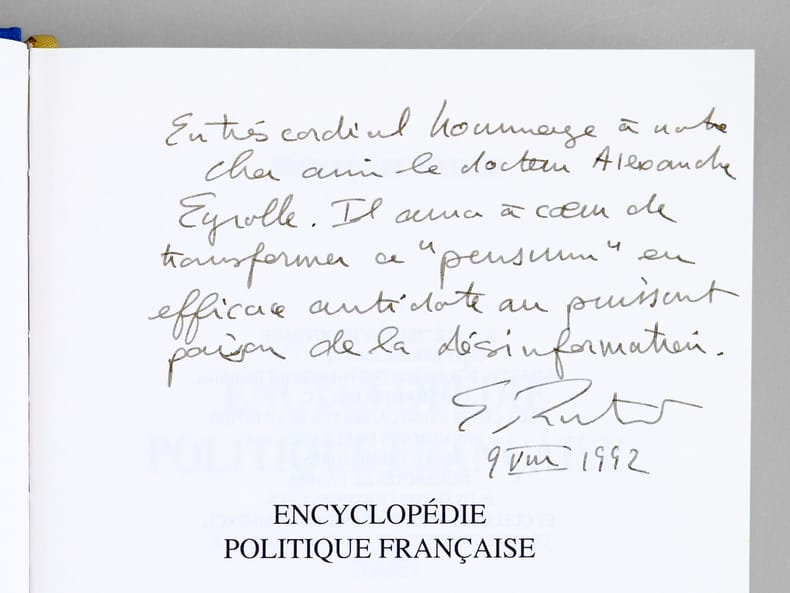 En très cordial hommage à notre
cher ami le docteur Alexandre
Eyrolle. Il aura à cœur de
transformer ce "pensum" en
efficace antidote au puissant
poison de la désinformation.
9 VIII 1992
ENCYCLOPÉDIE
POLITIQUE FRANÇAISE